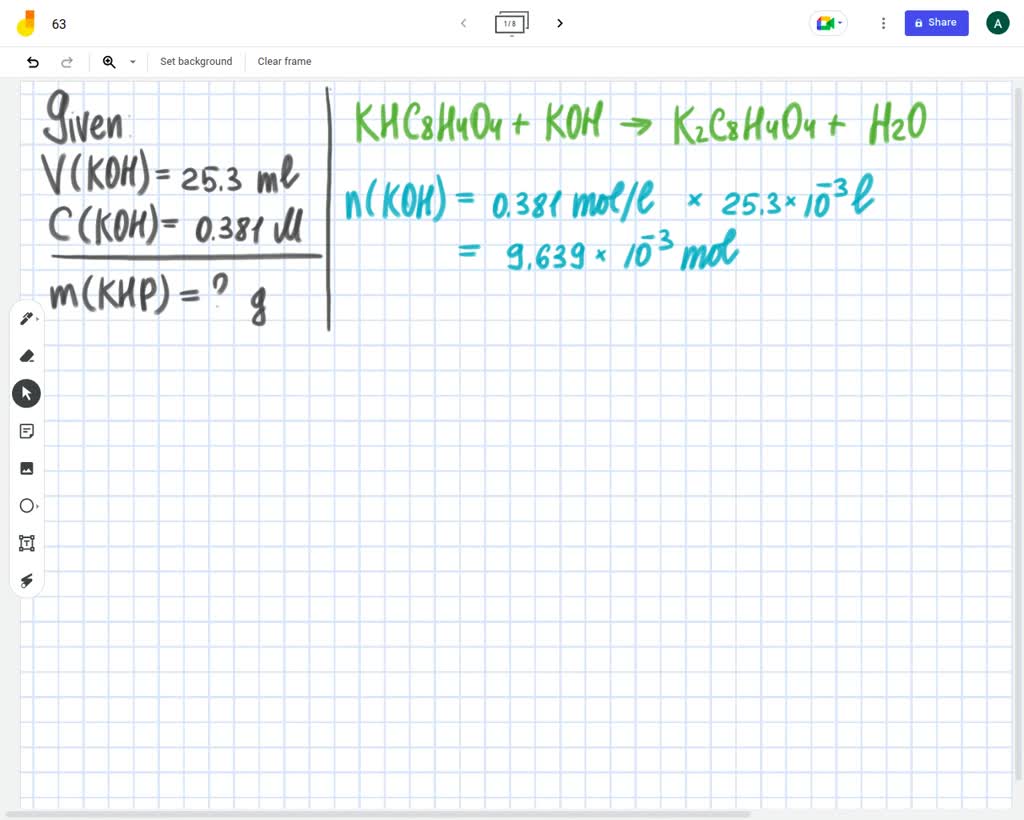 63
1/8
Share
A
Set background
Clear frame
Given:
V(KOH) = 25.3 ml
C(KOH) = 0.381 M
m(KHP) = ? g
KHC8H4O4 + KOH → K2C8H4O4 + H2O
n(KOH) = 0.381 mol/l × 25.3 × 10⁻³ l
= 9.639 × 10⁻³ mol